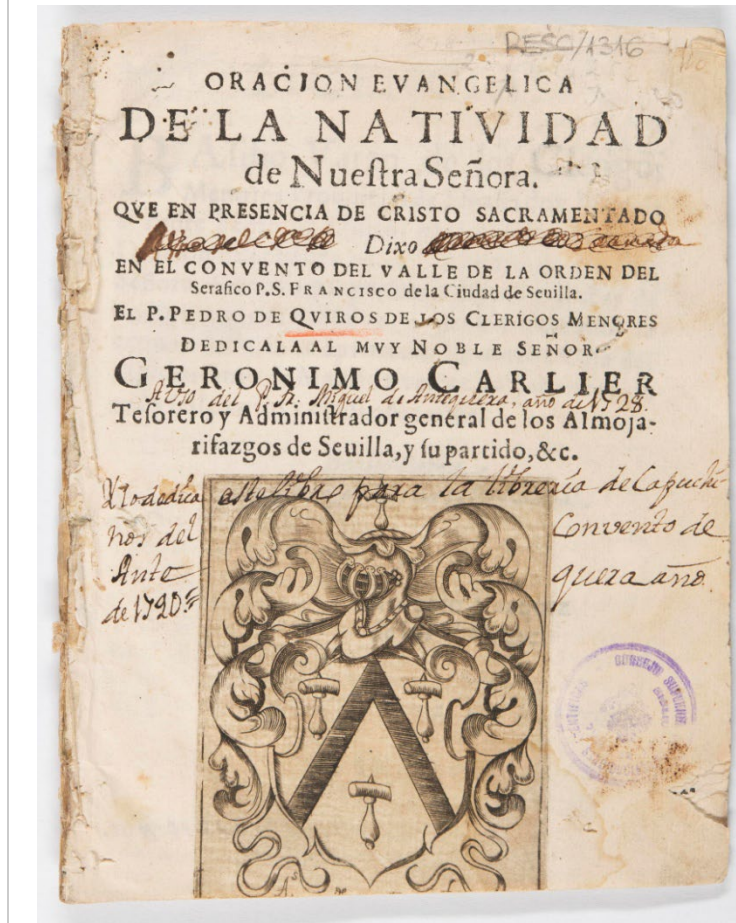 RESC/1316
ORACION EVANGELICA
DE LA NATIVIDAD
de Nueſtra Señora.
QVE EN PRESENCIA DE CRISTO SACRAMENTADO
Dixo
EN EL CONVENTO DEL VALLE DE LA ORDEN DEL
Serafico P.S. FRANCISCO de la Ciudad de Seuilla.
EL P. PEDRO DE QVIROS DE LOS CLERIGOS MENORES
DEDICALA AL MVY NOBLE SEÑOR
GERONIMO CARLIER
del P. Fr. Miguel de Antequera, año de 1728.
Teſorero y Adminiſtrador general de los Almoja-
rifazgos de Seuilla, y ſu partido, &c.
este libro para la libreria de Capuchi
nos del Convento de
Ante quera año
de
CONSEJO SUPERIOR